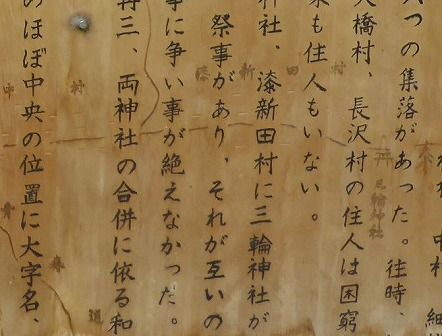 村、中村、細
つの集落があった。往時、
大橋村、長沢村の住人は困窮
も住人もいない。
神社、漆新田村に三輪神社が
祭事があり、それが互いの
事に争い事が絶えなかった。
再三、両神社の合併に依る和
のほぼ中央の位置に大字名、
漆新田村
三輪神社
中村